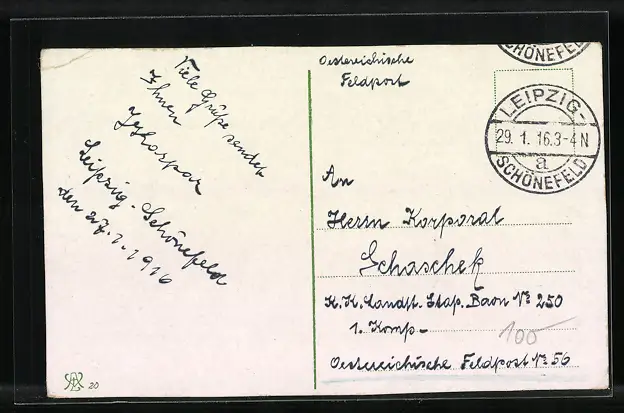 Viele Grüße sendet
Ihnen
Leipzig-Schönefeld
den 27.1.1916
20
Oestereichische
Feldpost
SCHÖNEFELD
LEIPZIG-
29. 1. 16.3-4N
a
SCHÖNEFELD
An
Herrn Korporal
Schaschek
K.K. Landst. Etap. Baon No 250
1. Komp-
100
Oestereichische Feldpost No 56